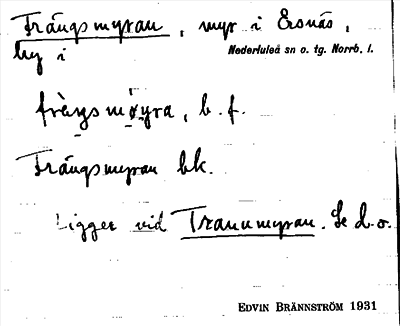 Trängsmyran, myr i Ersnäs,
by i Nederluleå sn o. tg. Norrb. l.
b. f.
Trängsmyran bk.
Ligger vid Tranumyran. Se d. o.
EDVIN BRÄNNSTRÖM 1931